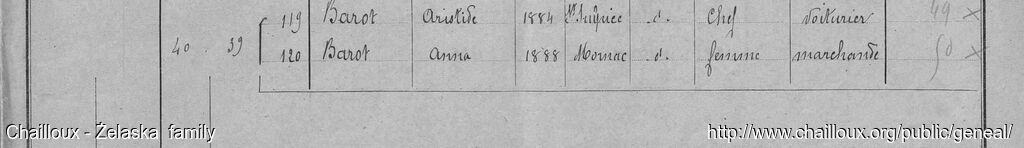 119 Barot Aristide 1884 St Sulpice d. Chef Voiturier 49 ×
40 . 39 120 Barot Anna 1888 Mornac d. femme marchande 50 ×
Chailloux - Żelaska family
http://www.chailloux.org/public/geneal/